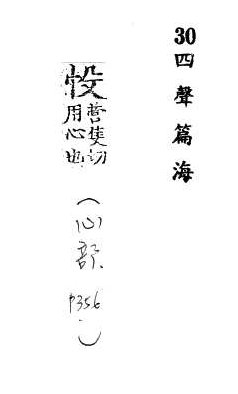 30四聲篇海
營隻切
用心也
(心部 P356.)